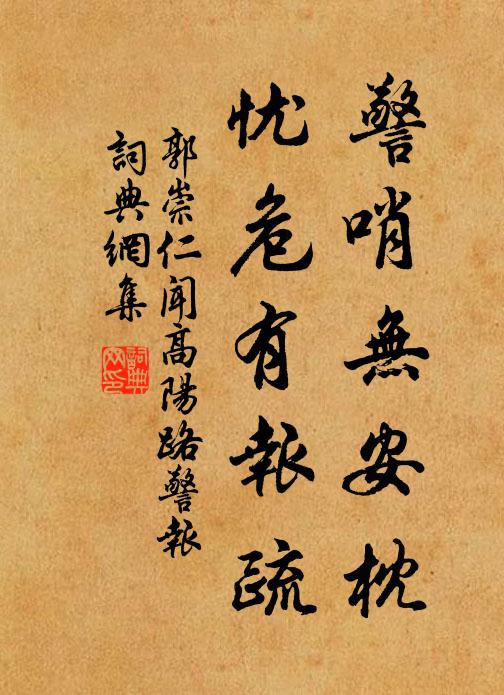 警哨無安枕
忧危有報疏
郭崇仁闻高陽路警報
詞典網集
詞典
网印